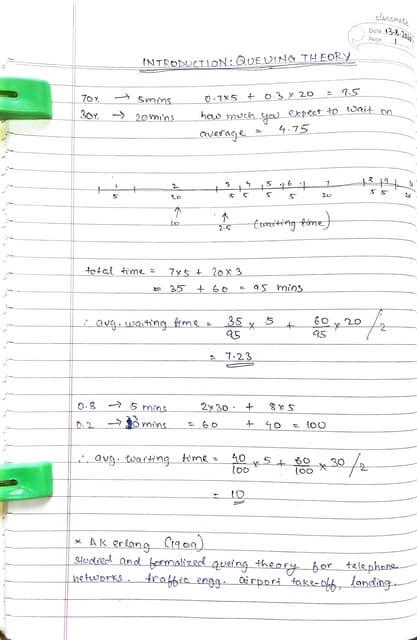 classmate
Date 13.8.2022
Page 1
INTRODUCTION: QUEUING THEORY
70% → 5mins 0.7×5 + 0.3×20 = 9.5
30% → 20mins how much you expect to wait on
average = 4.75
1 2 3 4 5 6 7 8 9
5 20 5 5 5 5 20 5 5 20
↑ ↑
10 2.5 (waiting time)
total time = 7×5 + 20×3
= 35 + 60 = 95 mins
∴ avg. waiting time = 35/95 × 5 + 60/95 × 20 /2
= 7.23
0.8 → 5 mins 2×30 + 8×5
0.2 → 30mins = 60 + 40 = 100
∴ avg. waiting time = 40/100 × 5 + 60/100 × 30 /2
= 10
* AK erlang (1909)
studied and formalized queing theory for telephone
networks. traffic engg. airport take-off, landing.